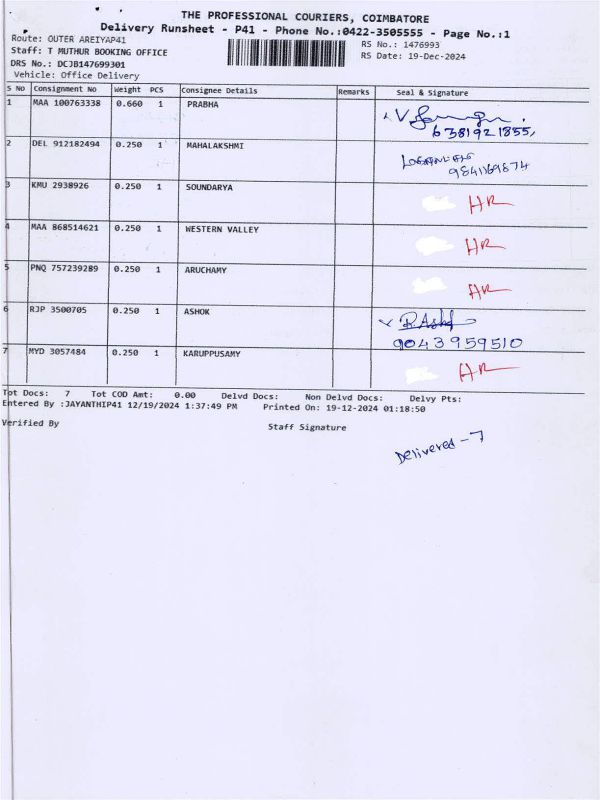 THE PROFESSIONAL COURIERS, COIMBATORE
Delivery Runsheet - P41 - Phone No.:0422-3505555 - Page No.:1
Route: OUTER AREIYAP41
RS No.: 1476993
Staff: T MUTHUR BOOKING OFFICE
RS Date: 19-Dec-2024
DRS No.: DCJB147699301
Vehicle: Office Delivery
S No Consignment No Weight PCS Consignee Details Remarks Seal & Signature
1 MAA 100763338 0.660 1 PRABHA
6381921855,
2 DEL 912182494 0.250 1 MAHALAKSHMI
9841169874
3 KMU 2938926 0.250 1 SOUNDARYA
HR
4 MAA 868514621 0.250 1 WESTERN VALLEY
HR
5 PNQ 757239289 0.250 1 ARUCHAMY
HR
6 RJP 3500705 0.250 1 ASHOK
R.Ashok
9043959510
7 MYD 3057484 0.250 1 KARUPPUSAMY
HR
Tot Docs: 7 Tot COD Amt: 0.00 Delvd Docs: Non Delvd Docs: Delvy Pts:
Entered By :JAYANTHIP41 12/19/2024 1:37:49 PM Printed On: 19-12-2024 01:18:50
Verified By Staff Signature
Delivered - 7